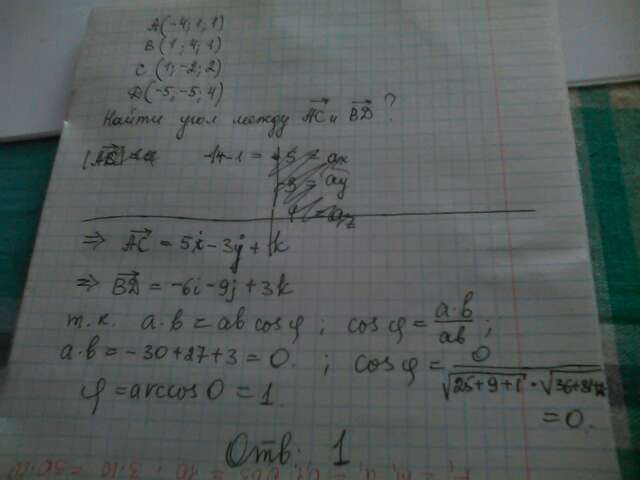 A(-4; 1; 1)
B(1; 4; 1)
C(1; -2; 2)
D(-5; -5; 4)
Найти угол между AC и BD?
-4-1 = -5 = ax
-3 = ay
⇒ AC = 5i - 3j + 1k
⇒ BD = -6i - 9j + 3k
т.к. a·b = ab cos φ ; cos φ = a·b / ab ;
a·b = -30 + 27 + 3 = 0. ; cos φ = 0 / √25+9+1 · √36+81+
= 0.
φ = arccos 0 = 1.
Отв: 1